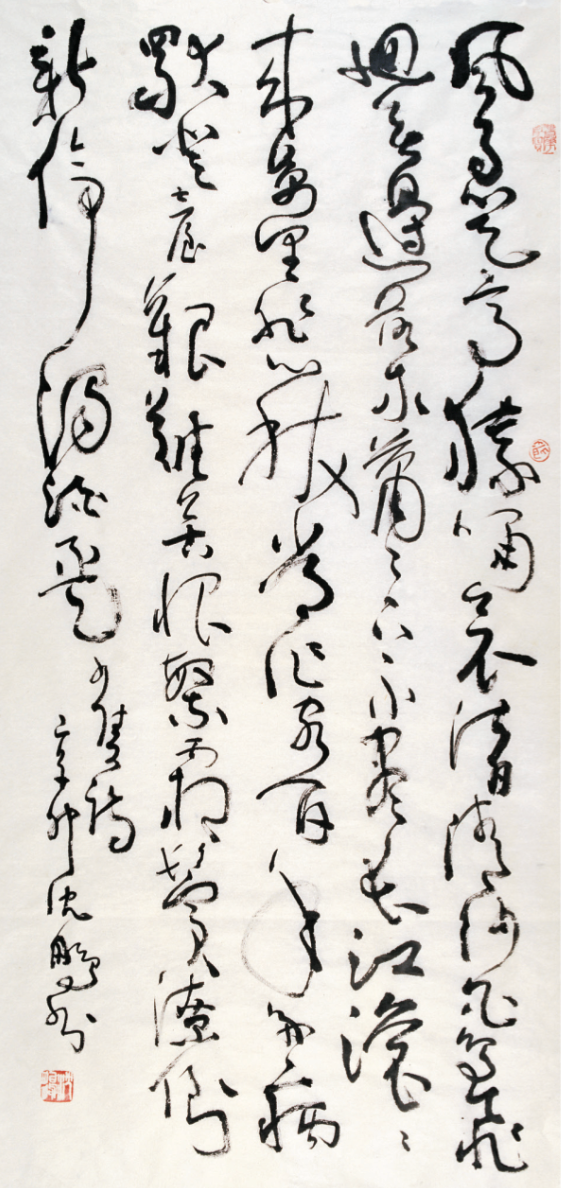 風急天高猿嘯哀渚清沙白鳥飛
迴無邊落木蕭〻下不盡長江滾〻
來萬里悲秋常作客百年多病
獨登臺艱難苦恨繁霜鬢潦倒
新停濁酒盃
少陵詩
辛卯沈鵬